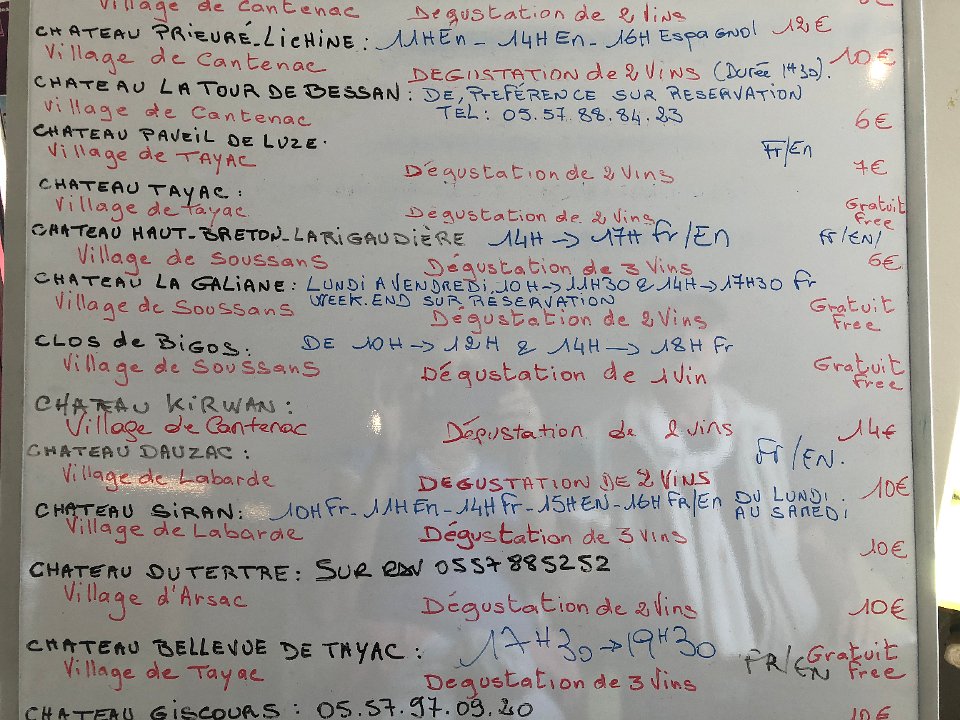 Village de Cantenac Dégustation de 2 Vins
CHATEAU PRIEURÉ-LICHINE : 11H En - 14H En - 16H Espagnol 12€
Village de Cantenac DEGUSTATION de 2 VINS (Durée 1H30). 10€
CHATEAU LA TOUR DE BESSAN : DE PREFÉRENCE SUR RESERVATION
Village de Cantenac TEL : 05.57.88.84.23 6€
CHATEAU PAVEIL DE LUZE. Fr/En
Village de TAYAC Dégustation de 2 Vins 7€
CHATEAU TAYAC :
Village de Tayac Dégustation de 2 Vins Gratuit Free
CHATEAU HAUT-BRETON-LARIGAUDIÈRE 14H → 17H Fr/En Fr/EN/
Village de Soussans Dégustation de 3 Vins 6€
CHATEAU LA GALIANE : LUNDI A VENDREDI 10H → 11H30 & 14H → 17H30 Fr
WEEK.END SUR RÉSERVATION
Village de Soussans Dégustation de 2 Vins Gratuit Free
CLOS de BIGOS : DE 10H → 12H & 14H → 18H Fr
Village de Soussans Dégustation de 1 Vin Gratuit Free
CHATEAU KIRWAN :
Village de Cantenac Dégustation de 2 vins 14€
CHATEAU DAUZAC : Fr/EN.
Village de Labarde DEGUSTATION DE 2 VINS 10€
CHATEAU SIRAN : 10H Fr - 11H En - 14H Fr - 15H EN - 16H FR/En DU LUNDI AU SAMEDI
Village de Labarde Dégustation de 3 Vins 10€
CHATEAU DU TERTRE : SUR RDV 0557885252
Village d'Arsac Dégustation de 2 Vins 10€
CHATEAU BELLEVUE DE TAYAC : 17H30 → 19H30 FR/EN
Village de Tayac Degustation de 3 Vins Gratuit Free
CHATEAU GISCOURS : 05.57.97.09.20 10€